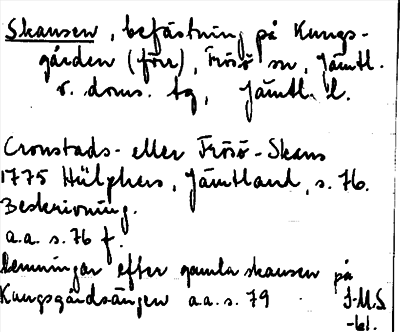 Skansen, befästning på Kungs-
gården (förr), Frösö sn, Jämtl.
v. doms. tg, Jämtl. l.
Cronstads- eller Frösö-Skans
1775 Hülphers, Jämtland, s. 76.
Beskrivning.
a.a. s. 76 f.
Lemningar efter gamla skansen på
Kungsgårdsängen a.a. s. 79
J.M.S
-61.